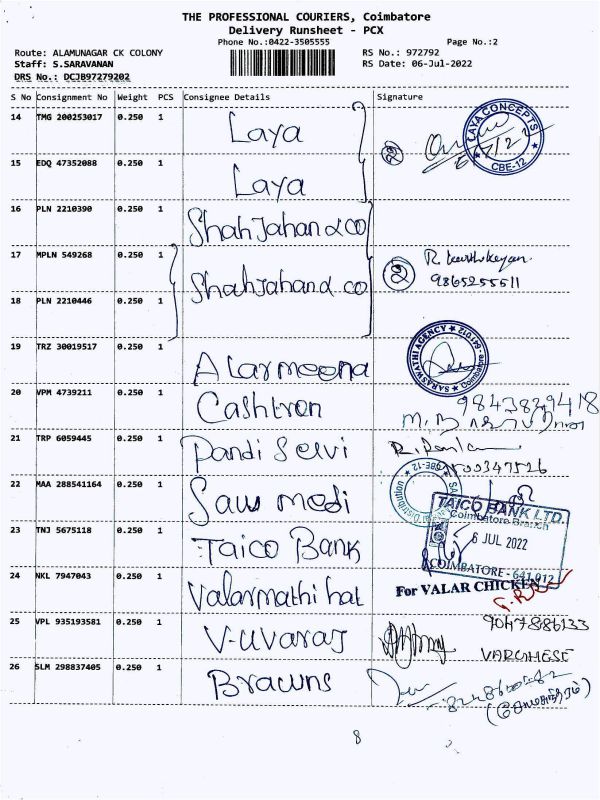 THE PROFESSIONAL COURIERS, Coimbatore
Delivery Runsheet - PCX
Phone No.:0422-3505555 Page No.:2
Route: ALAMUNAGAR CK COLONY RS No.: 972792
Staff: S.SARAVANAN RS Date: 06-Jul-2022
DRS No.: DCJB97279202
S No Consignment No Weight PCS Consignee Details Signature
14 TMG 200253017 0.250 1 Laya
LAYA CONCEPTS CBE-12
15 EDQ 47352088 0.250 1 Laya
2
16 PLN 2210390 0.250 1 Shah Jahan & co
17 MPLN 549268 0.250 1 Shahjahan & co 2 R. Karthikeyan
9865255511
18 PLN 2210446 0.250 1
19 TRZ 30019517 0.250 1 Alarmeena
SARASWATHI AGENCY Coimbatore - 641 012
20 VPM 4739211 0.250 1 Cashtron 9843829418
21 TRP 6059445 0.250 1 Pandi Selvi
22 MAA 288541164 0.250 1 Saw medi
CBE-12
23 TNJ 5675118 0.250 1 Taico Bank
TAICO BANK LTD.
Coimbatore Branch
6 JUL 2022
COIMBATORE - 641 012
24 NKL 7947043 0.250 1 Valarmathi hat
For VALAR CHICKEN
25 VPL 935193581 0.250 1 V-uvaraj 9047886133
VARGHESE
26 SLM 298837405 0.250 1 Brawns
8